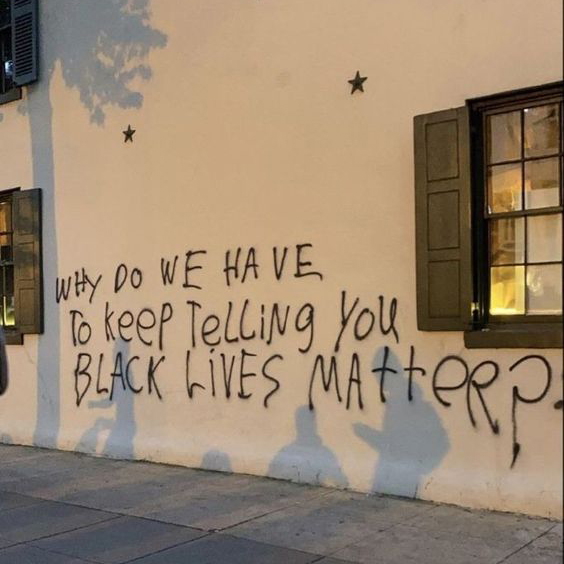 WHY DO WE HAVE
To keep TeLLiNg You
BLACK LiVES MAtteR?